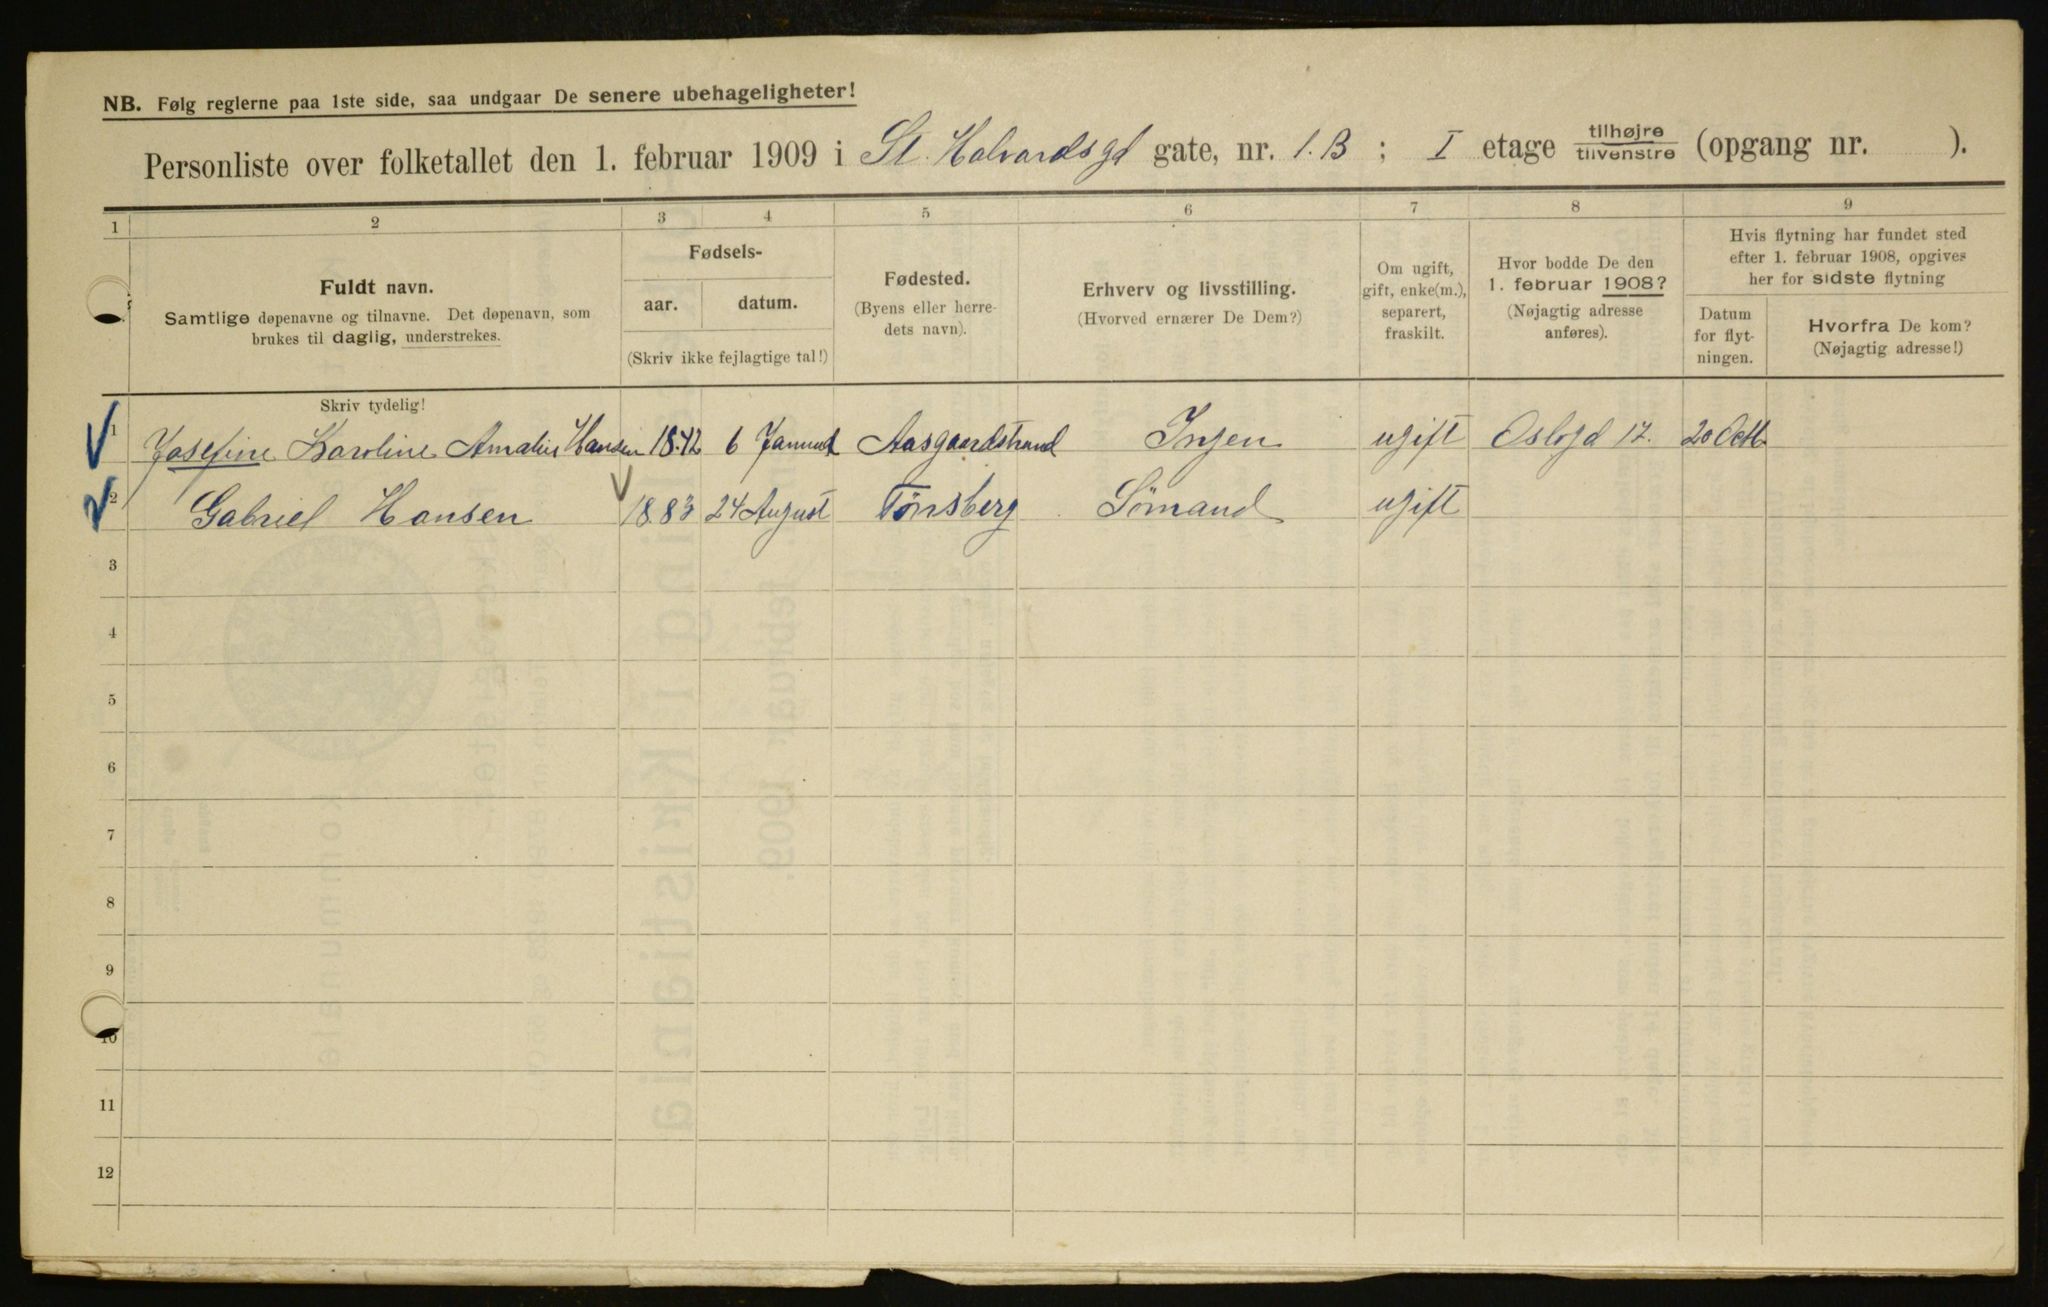 NB. Følg reglerne paa 1ste side, saa undgaar De senere ubehageligheter!
Personliste over folketallet den 1. februar 1909 i St. Halvardsgd gate, nr. 1.B ; I etage tilhøjre/tilvenstre (opgang nr. ).
1 2 3 4 5 6 7 8 9
Fuldt navn.
Samtlige døpenavne og tilnavne. Det døpenavn, som
brukes til daglig, understrekes.
Fødsels-
aar. datum.
(Skriv ikke fejlagtige tal!)
Fødested.
(Byens eller herre-
dets navn).
Erhverv og livsstilling.
(Hvorved ernærer De Dem?)
Om ugift,
gift, enke(m.),
separert,
fraskilt.
Hvor bodde De den
1. februar 1908?
(Nøjagtig adresse
anføres).
Hvis flytning har fundet sted
efter 1. februar 1908, opgives
her for sidste flytning
Datum
for flyt-
ningen.
Hvorfra De kom?
(Nøjagtig adresse!)
Skriv tydelig!
1 Josefine Karoline Amalie Hansen 1842 6 Januar Aasgaardstrand Ingen ugift Oslogd 17. 20 Octb
2 Gabriel Hansen 1883 24 August Tønsberg Sömand ugift
3
4
5
6
7
8
9
10
11
12